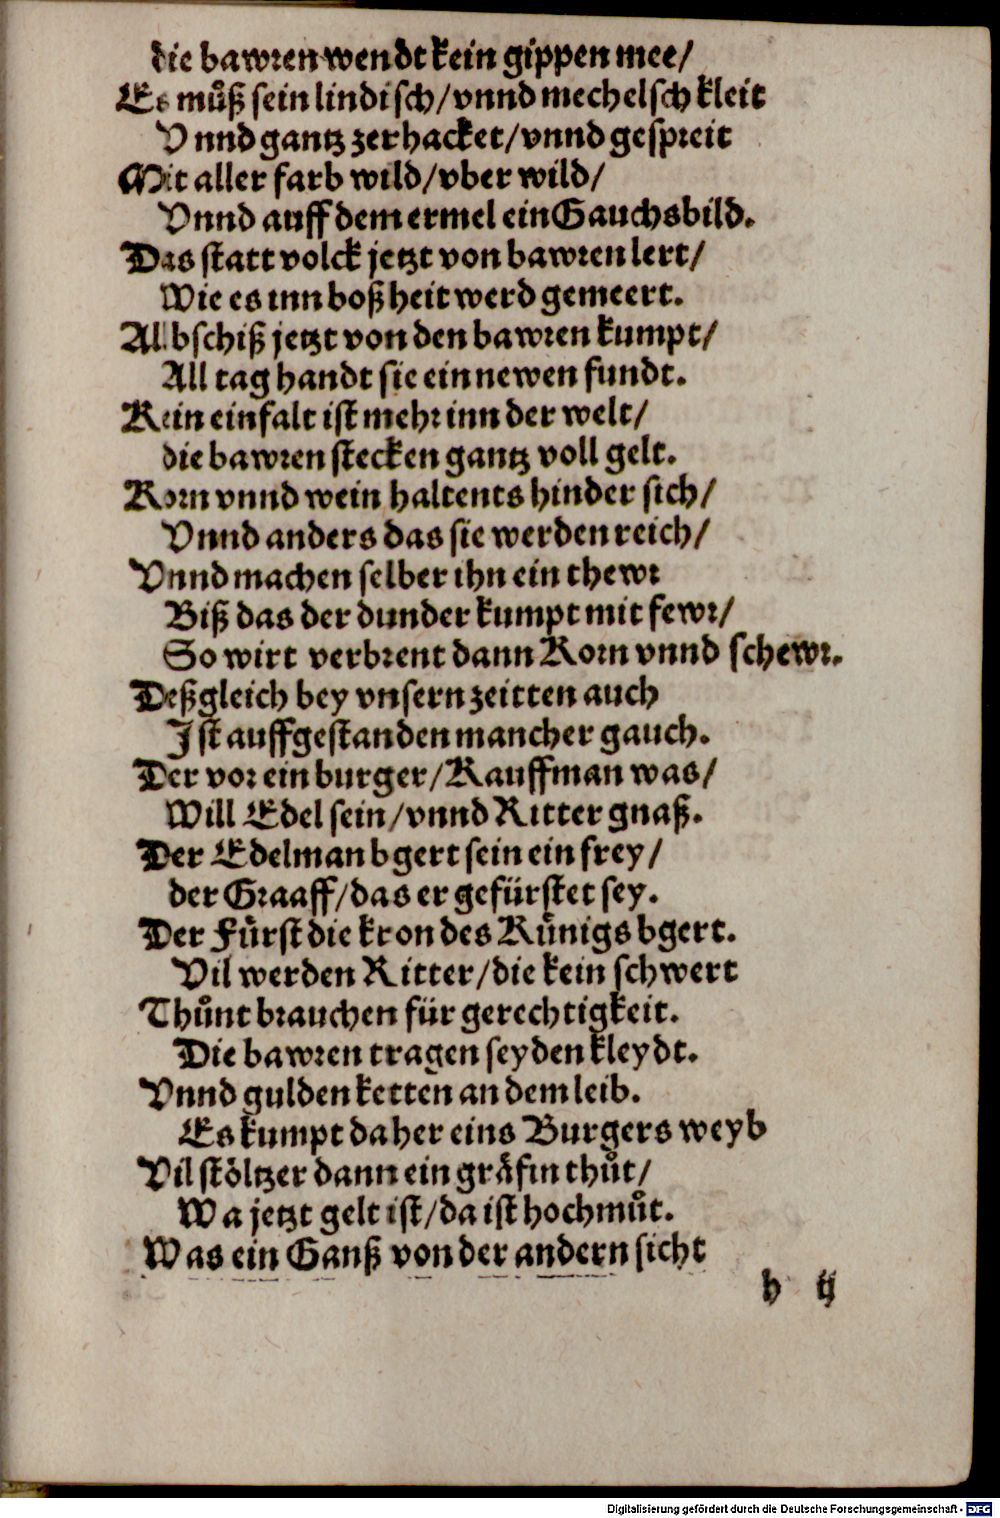 die bawren wendt kein gippen mee/
Es můß sein lindisch/vnnd mechelsch kleit
Vnnd gantz zerhacket/vnnd gespreit
Mit aller farb wild/vber wild/
Vnnd auff dem ermel ein Gauchsbild.
Das statt volck jetzt von bawren lert/
Wie es inn boßheit werd gemeert.
All bschiß jetzt von den bawren kumpt/
All tag handt sie ein newen fundt.
Kein einfalt ist mehr inn der welt/
die bawren stecken gantz voll gelt.
Korn vnnd wein haltents hinder sich/
Vnnd anders das sie werden reich/
Vnnd machen selber ihn ein thewr
Biß das der dunder kumpt mit fewr/
So wirt verbrent dann Korn vnnd schewr.
Deßgleich bey vnsern zeitten auch
Ist auffgestanden mancher gauch.
Der vor ein burger/Kauffman was/
Will Edel sein/vnnd Ritter gnaß.
Der Edelman bgert sein ein frey/
der Graaff/das er gefürstet sey.
Der Fürst die kron des Künigs bgert.
Vil werden Ritter/die kein schwert
Thůnt brauchen für gerechtigkeit.
Die bawren tragen seyden kleydt.
Vnnd gulden ketten an dem leib.
Es kumpt daher eins Burgers weyb
Vil stöltzer dann ein gräfin thůt/
Wa jetzt gelt ist/da ist hochmůt.
Was ein Ganß von der andern sicht
h ij
Digitalisierung gefördert durch die Deutsche Forschungsgemeinschaft - DFG